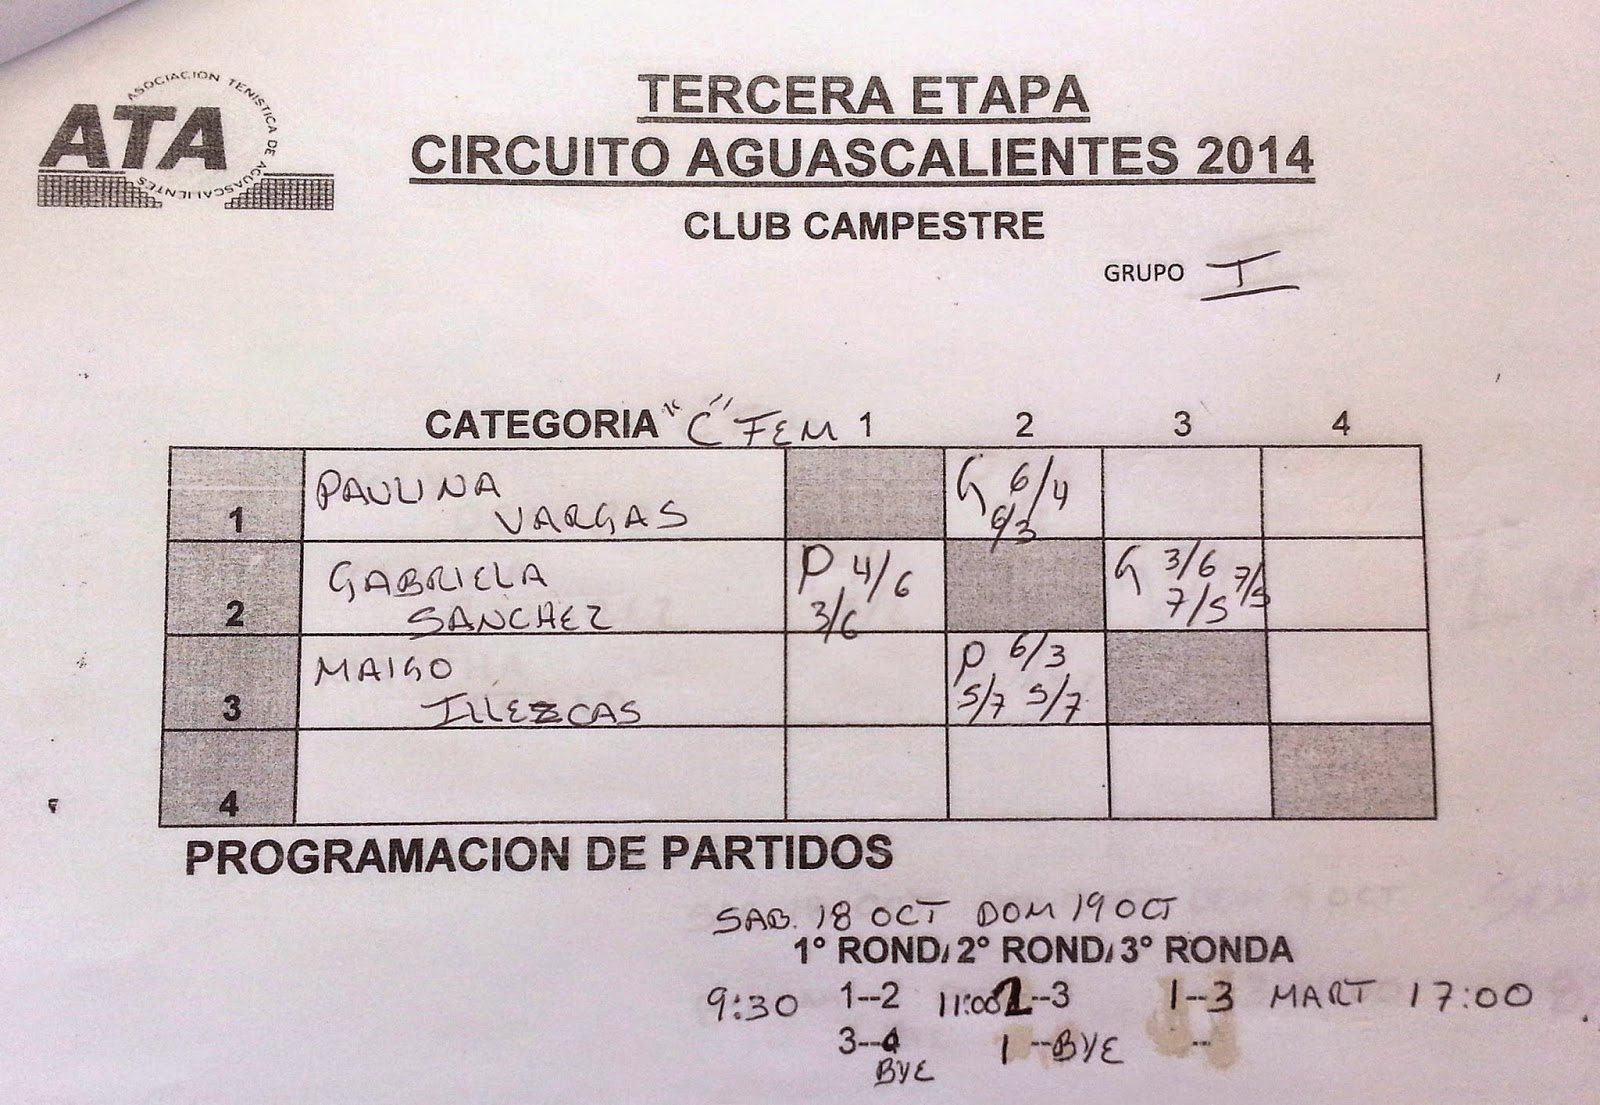 ASOCIACION TENISTICA DE AGUASCALIENTES
ATA
TERCERA ETAPA
CIRCUITO AGUASCALIENTES 2014
CLUB CAMPESTRE
GRUPO I
CATEGORIA "C" FEM 1 2 3 4
1 PAULINA VARGAS G 6/4 6/3
2 GABRIELA SANCHEZ P 4/6 3/6 G 3/6 7/5 7/5
3 MAIGO ILLEZCAS P 6/3 5/7 5/7
4
PROGRAMACION DE PARTIDOS
SAB. 18 OCT DOM 19 OCT
1° RONDA 2° RONDA 3° RONDA
9:30 1--2 11:00 2--3 1--3 MART 17:00
3--4 1--BYE --
BYE